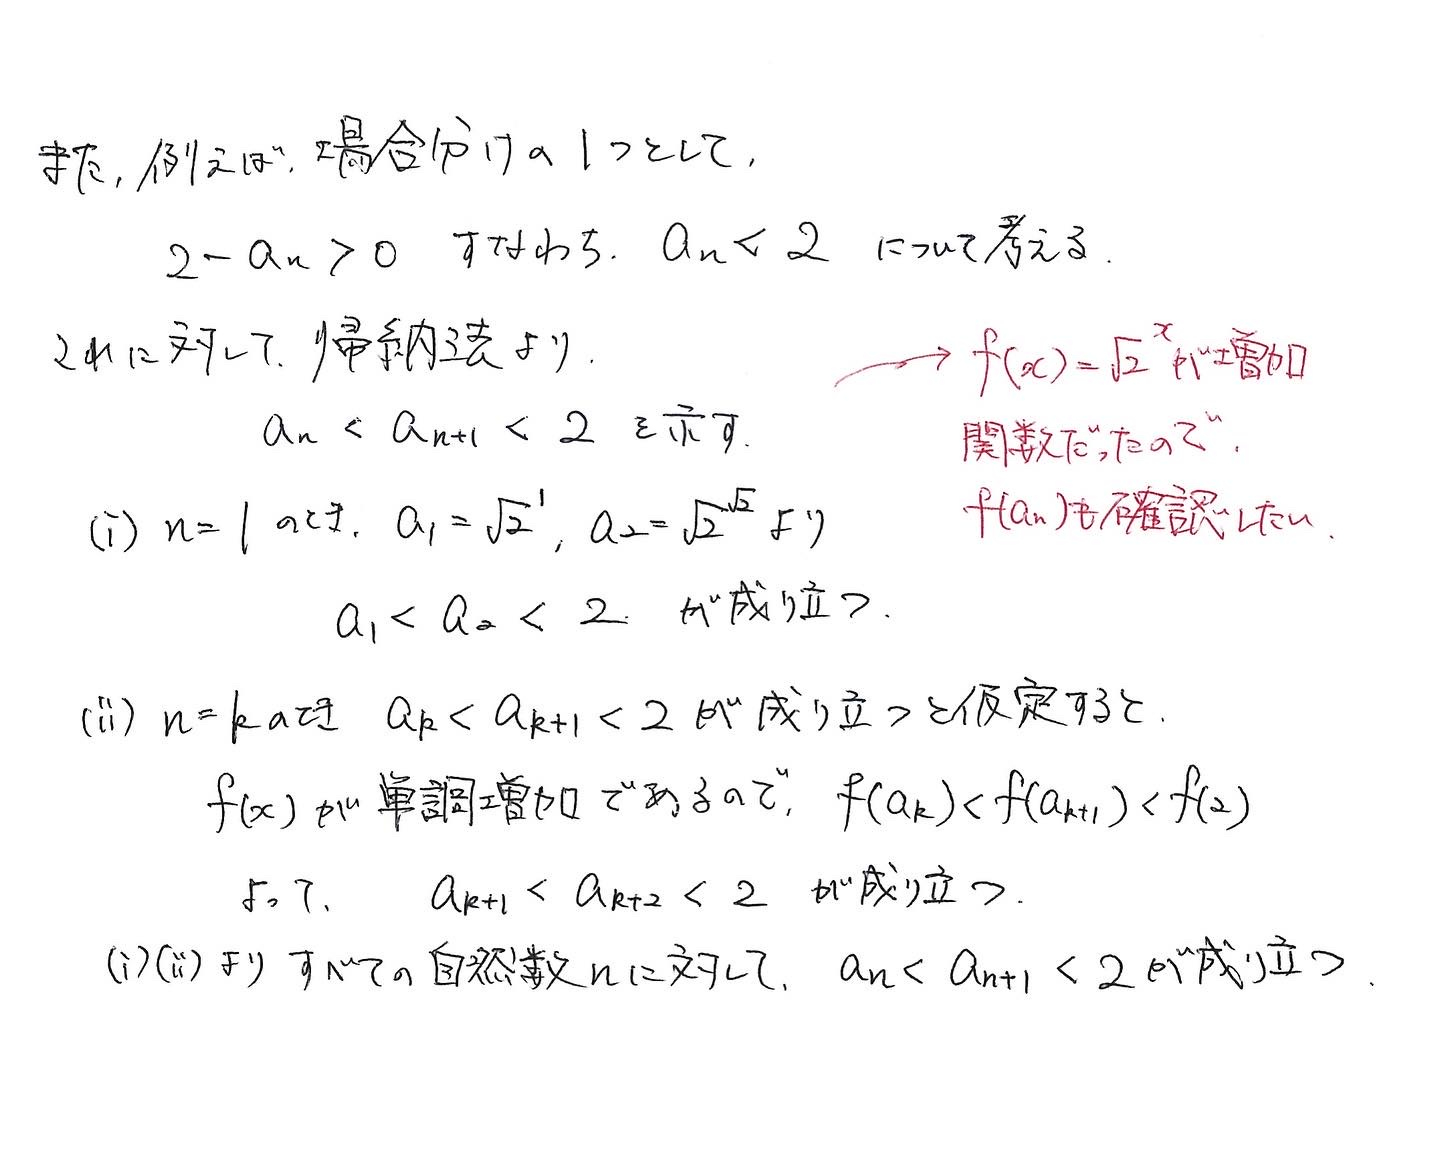 また、例えば、場合分けの1つとして、
2-aₙ>0 すなわち、aₙ<2 について考える.
これに対して、帰納法より、
aₙ < aₙ₊₁ < 2 を示す.
→ f(x)=√2^x が増加
関数だったので、
f(aₙ)も確認したい.
(i) n=1 のとき、a₁=√2^1, a₂=√2^√2 より
a₁ < a₂ < 2 が成り立つ.
(ii) n=k のとき aₖ < aₖ₊₁ < 2 が成り立つと仮定すると、
f(x) が単調増加であるので、f(aₖ)<f(aₖ₊₁)<f(2)
よって、 aₖ₊₁ < aₖ₊₂ < 2 が成り立つ.
(i)(ii)より すべての自然数nに対して、aₙ < aₙ₊₁ < 2 が成り立つ.